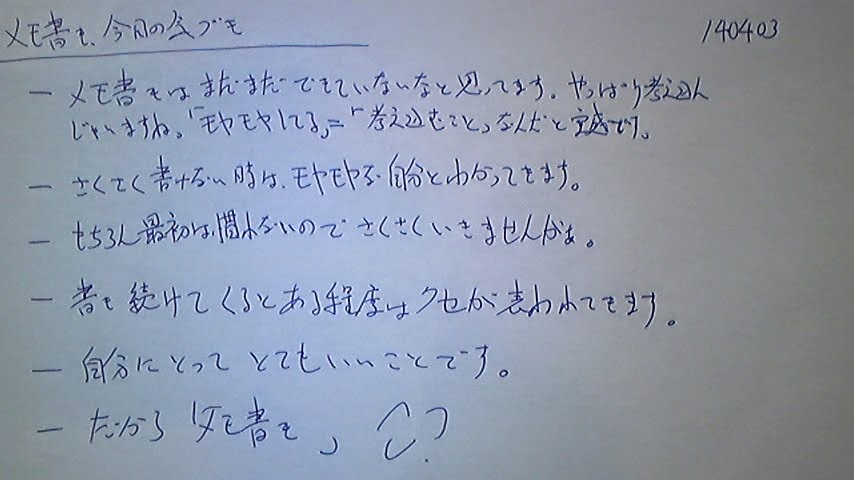 メモ書き、今日の気づき
140403
ー メモ書きはまだまだできていないなと思ってます。やっぱり考え込ん
じゃいますね。「モヤモヤしてる」=「考え込むこと」なんだと実感です。
ー さくさく書けない時は、モヤモヤな自分とわかってきます。
ー もちろん最初は慣れないのでさくさくいきませんがぁ。
ー 書き続けてくるとある程度はクセが表われてきます。
ー 自分にとってとてもいいことです。
ー だから「メモ書き」 ?